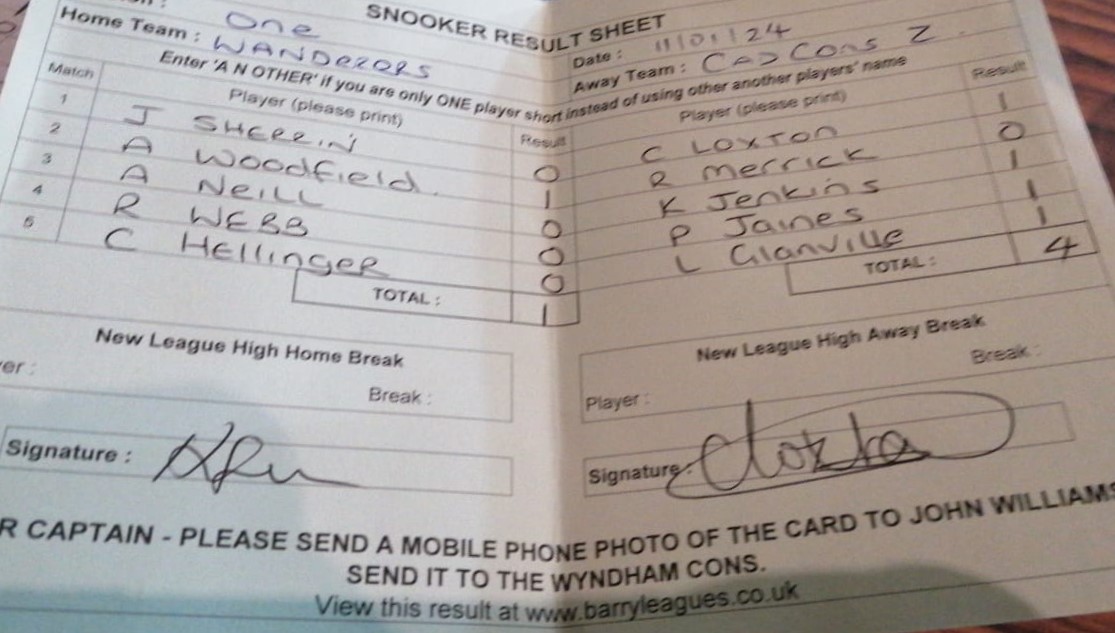 SNOOKER RESULT SHEET
One
Date : 11/01/24
Home Team : WANDERERS
Away Team : CADCONS 2
Enter 'A N OTHER' if you are only ONE player short instead of using other another players' name
Match Player (please print) Result Player (please print) Result
1 J SHERRIN 0 C LOXTON 1
2 A Woodfield. 1 R merrick 0
3 A NeiLL 0 K Jenkins 1
4 R WEBB 0 P Jaines 1
5 C HellingeR 0 L Glanville 1
TOTAL : 1 TOTAL : 4
New League High Home Break New League High Away Break
er : Break : Player : Break :
Signature : Signature :
R CAPTAIN - PLEASE SEND A MOBILE PHONE PHOTO OF THE CARD TO JOHN WILLIAMS
SEND IT TO THE WYNDHAM CONS.
View this result at www.barryleagues.co.uk